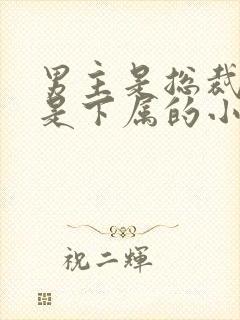 男主是总裁
是下属的小
祝二輝